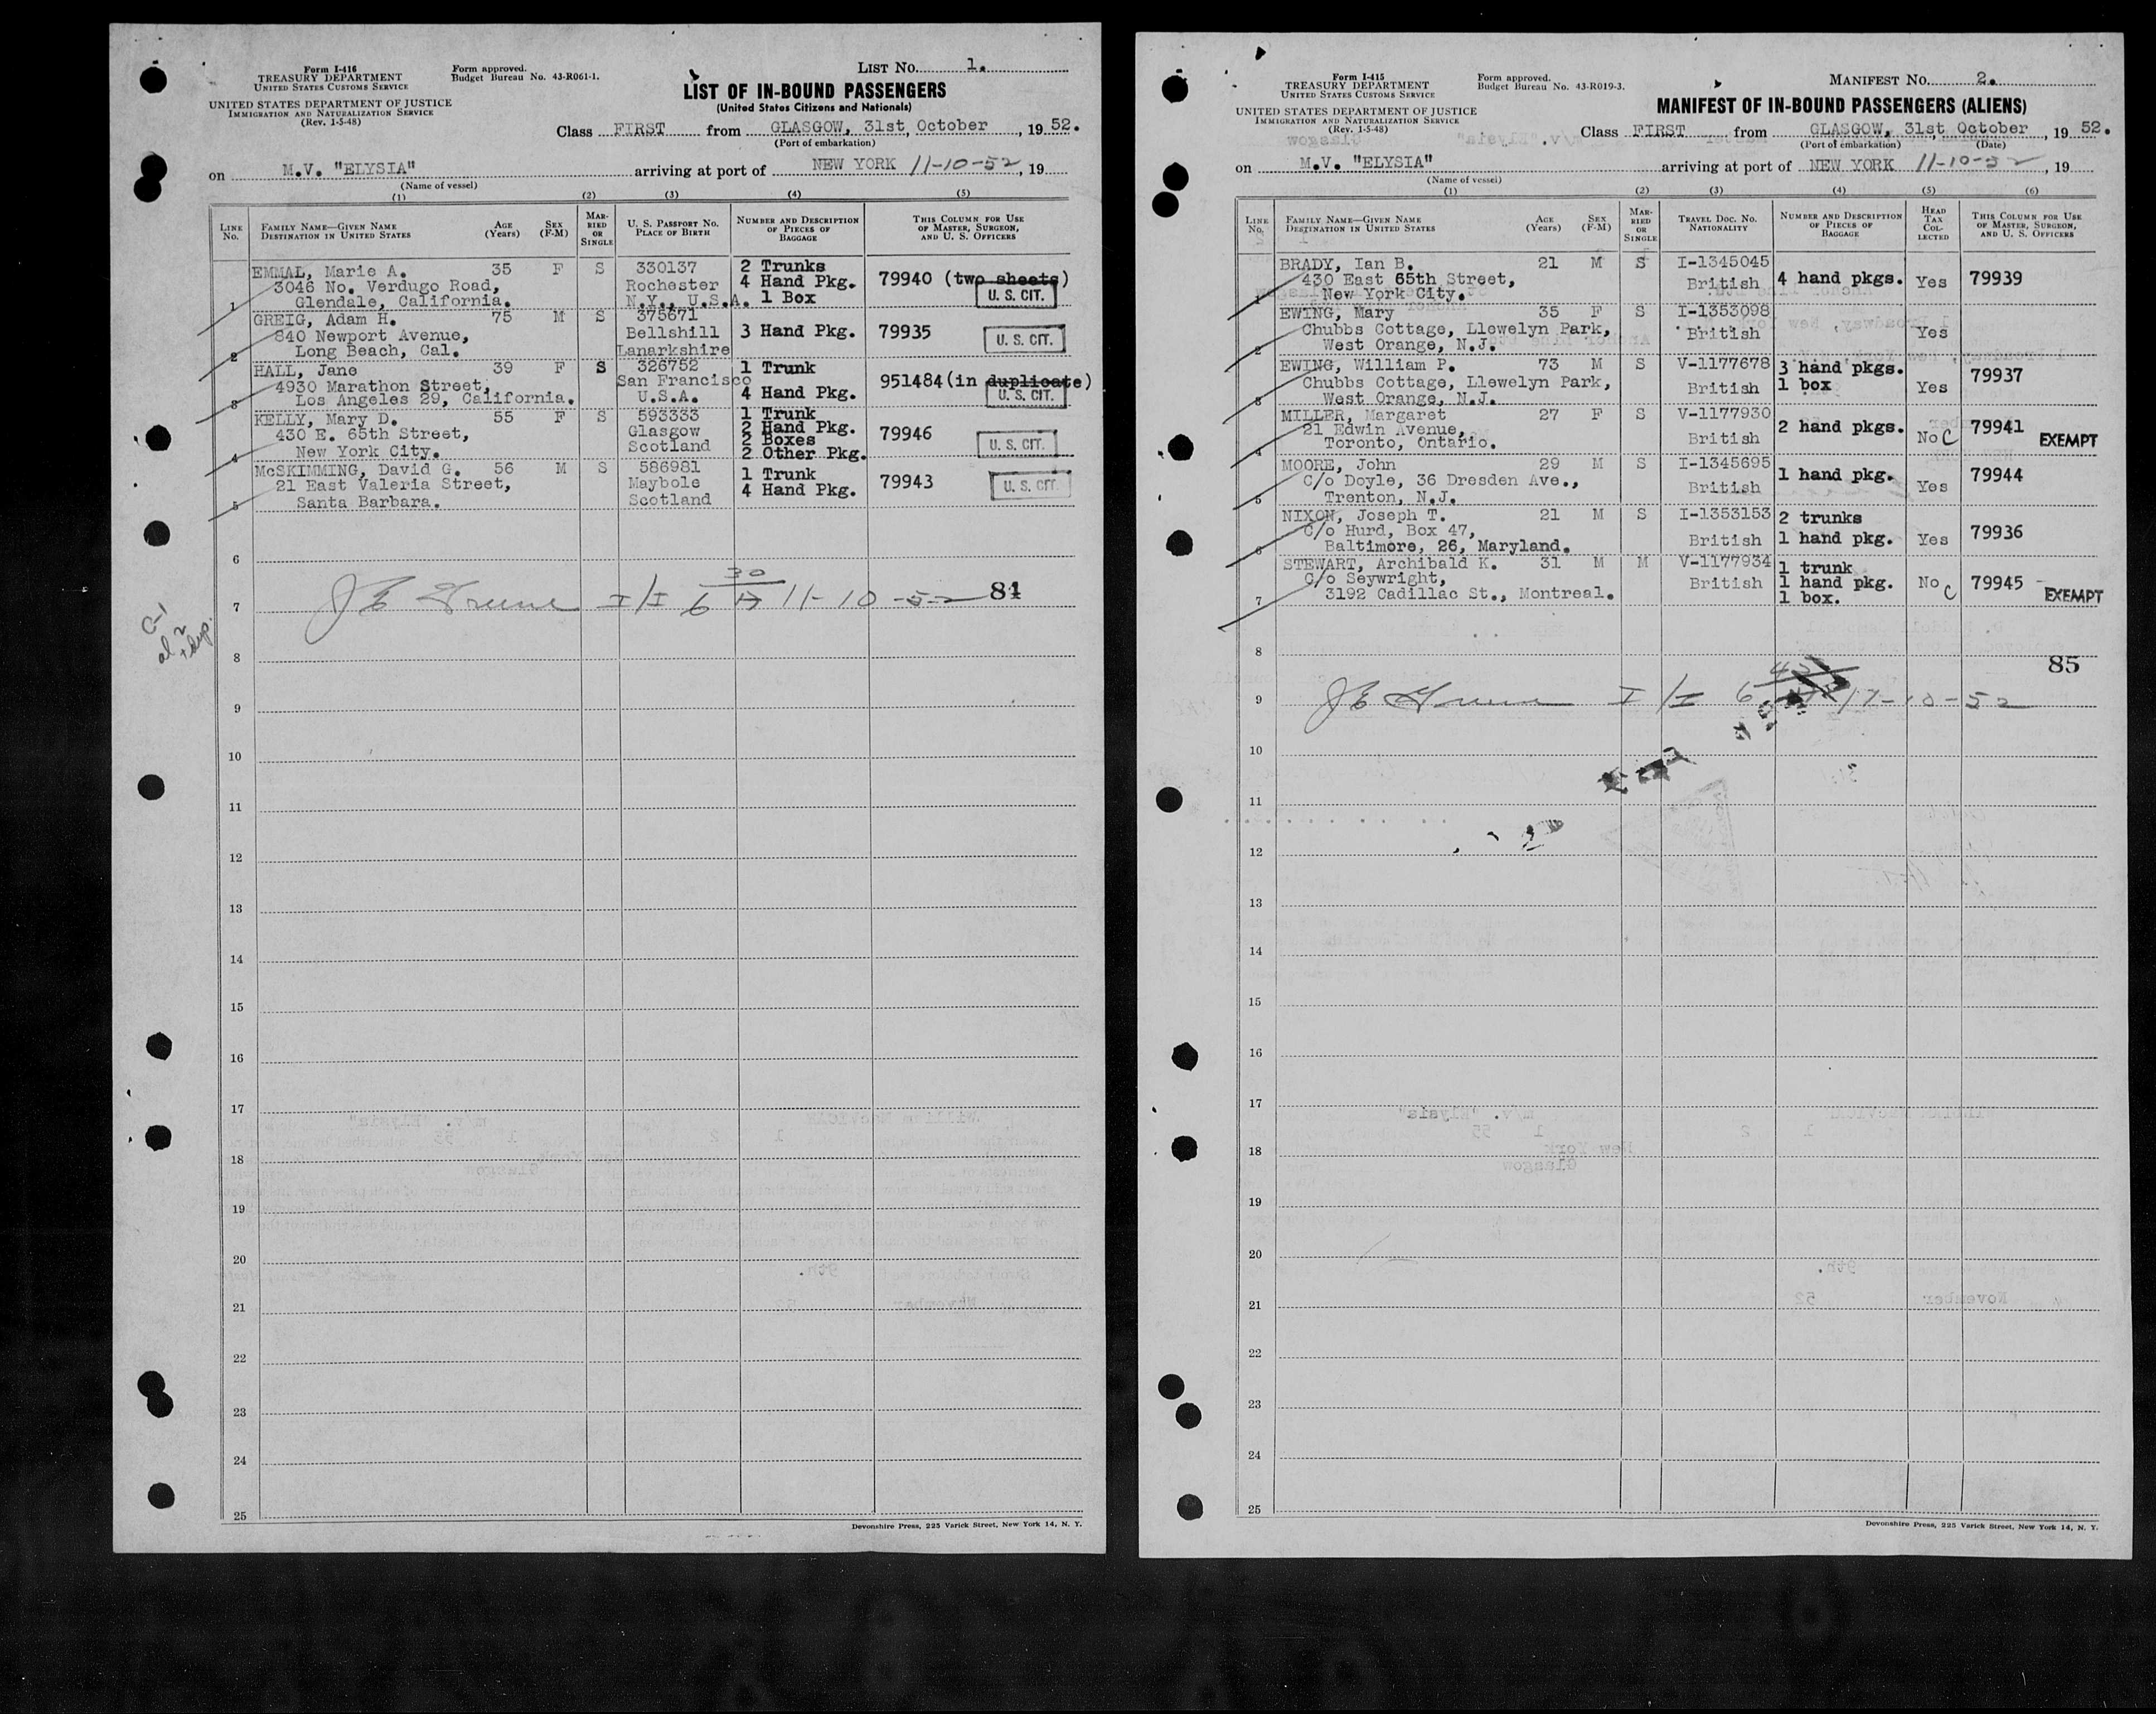 Form I-416
TREASURY DEPARTMENT
UNITED STATES CUSTOMS SERVICE
UNITED STATES DEPARTMENT OF JUSTICE
IMMIGRATION AND NATURALIZATION SERVICE
(Rev. 1-5-48)
Form approved.
Budget Bureau No. 43-R061-1.
LIST NO. 1.
LIST OF IN-BOUND PASSENGERS
(United States Citizens and Nationals)
Class FIRST from GLASGOW, 31st, October, 19 52.
(Port of embarkation)
on M.V. "ELYSIA" arriving at port of NEW YORK 11-10-52, 19
(Name of vessel)
(1) (2) (3) (4) (5)
LINE No. FAMILY NAME—GIVEN NAME DESTINATION IN UNITED STATES AGE (Years) SEX (F-M) MARRIED OR SINGLE U. S. PASSPORT NO. PLACE OF BIRTH NUMBER AND DESCRIPTION OF PIECES OF BAGGAGE THIS COLUMN FOR USE OF MASTER, SURGEON, AND U. S. OFFICERS
EMMAL, Marie A. 35 F S 330137 2 Trunks
3046 No. Verdugo Road, Rochester 4 Hand Pkg. 79940 (two sheets)
1 Glendale, California. N.Y., U.S.A. 1 Box U. S. CIT.
GREIG, Adam H. 75 M S 375671
840 Newport Avenue, Bellshill 3 Hand Pkg. 79935 U. S. CIT.
2 Long Beach, Cal. Lanarkshire
HALL, Jane 39 F S 326752 1 Trunk
4930 Marathon Street, San Francisco 951484 (in duplicate)
3 Los Angeles 29, California. U.S.A. 4 Hand Pkg. U. S. CIT.
KELLY, Mary D. 55 F S 593333 1 Trunk
430 E. 65th Street, Glasgow 2 Hand Pkg. 79946 U. S. CIT.
4 New York City. Scotland 2 Boxes
2 Other Pkg.
McSKIMMING, David G. 56 M S 586981 1 Trunk
21 East Valeria Street, Maybole 4 Hand Pkg. 79943 U. S. CIT.
5 Santa Barbara. Scotland
6
7 I/I 6 30 11-10-52 84
8
9
10
11
12
13
14
15
16
17
18
19
20
21
22
23
24
25
Devonshire Press, 225 Varick Street, New York 14, N. Y.
Form I-415
TREASURY DEPARTMENT
UNITED STATES CUSTOMS SERVICE
UNITED STATES DEPARTMENT OF JUSTICE
IMMIGRATION AND NATURALIZATION SERVICE
(Rev. 1-5-48)
Form approved.
Budget Bureau No. 43-R019-3.
MANIFEST NO. 2.
MANIFEST OF IN-BOUND PASSENGERS (ALIENS)
Class FIRST from GLASGOW, 31st October, 19 52.
(Port of embarkation) (Date)
on M.V. "ELYSIA" arriving at port of NEW YORK 11-10-52, 19
(Name of vessel)
(1) (2) (3) (4) (5) (6)
LINE No. FAMILY NAME—GIVEN NAME DESTINATION IN UNITED STATES AGE (Years) SEX (F-M) MARRIED OR SINGLE TRAVEL DOC. NO. NATIONALITY NUMBER AND DESCRIPTION OF PIECES OF BAGGAGE HEAD TAX COLLECTED THIS COLUMN FOR USE OF MASTER, SURGEON, AND U. S. OFFICERS
BRADY, Ian B. 21 M S I-1345045
430 East 65th Street, British 4 hand pkgs. Yes 79939
1 New York City.
EWING, Mary 35 F S I-1353098
Chubbs Cottage, Llewelyn Park, British Yes
2 West Orange, N.J.
EWING, William P. 73 M S V-1177678 3 hand pkgs. 79937
Chubbs Cottage, Llewelyn Park, British 1 box Yes
3 West Orange, N.J.
MILLER, Margaret 27 F S V-1177930
21 Edwin Avenue, British 2 hand pkgs. No C 79941 EXEMPT
4 Toronto, Ontario.
MOORE, John 29 M S I-1345695
C/o Doyle, 36 Dresden Ave., British 1 hand pkg. Yes 79944
5 Trenton, N.J.
NIXON, Joseph T. 21 M S I-1353153 2 trunks
C/o Hurd, Box 47, British 1 hand pkg. Yes 79936
6 Baltimore, 26, Maryland.
STEWART, Archibald K. 31 M M V-1177934 1 trunk
C/o Seywright, British 1 hand pkg. No C 79945 EXEMPT
7 3192 Cadillac St., Montreal. 1 box.
8 85
9 I/I 6
10
11
12
13
14
15
16
17
18
19
20
21
22
23
24
25
Devonshire Press, 225 Varick Street, New York 14, N. Y.